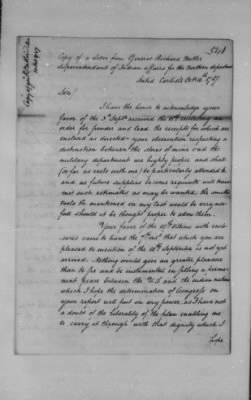 Copy of a letter from General Richard Butler
Superintendant of Indian affairs for the Northern department
dated Carlisle Octr 10th 1787
Sir
I have the honor to acknowledge your
favor of the 3d Septr received the
order for powder and lead the receipts for which are
inclosed as directed your observation respecting a
distinction between the stores of mine and the
military department are highly proper and shall
(so far as rests with me) be particularly attended to
and as future supplies become requisite will trans-
mit such estimates as may be wanted. the small
tools be mentioned on my last would be very use-
ful should it be thought proper to order them.
Your favor of the 29th ultimo with the en-
closures came to hand the that which you are
pleased to mention of the 18th September is not yet
arrived. Nothing would give me greater pleasure
than to see and be instrumental in fixing a perma-
nent peace between the U.S. and the indian nations
which I hope the determination of Congress on
your report will put in my power, as I have not
a doubt of the liberality of the plan enabling me
to carry it through with that dignity which I
hope